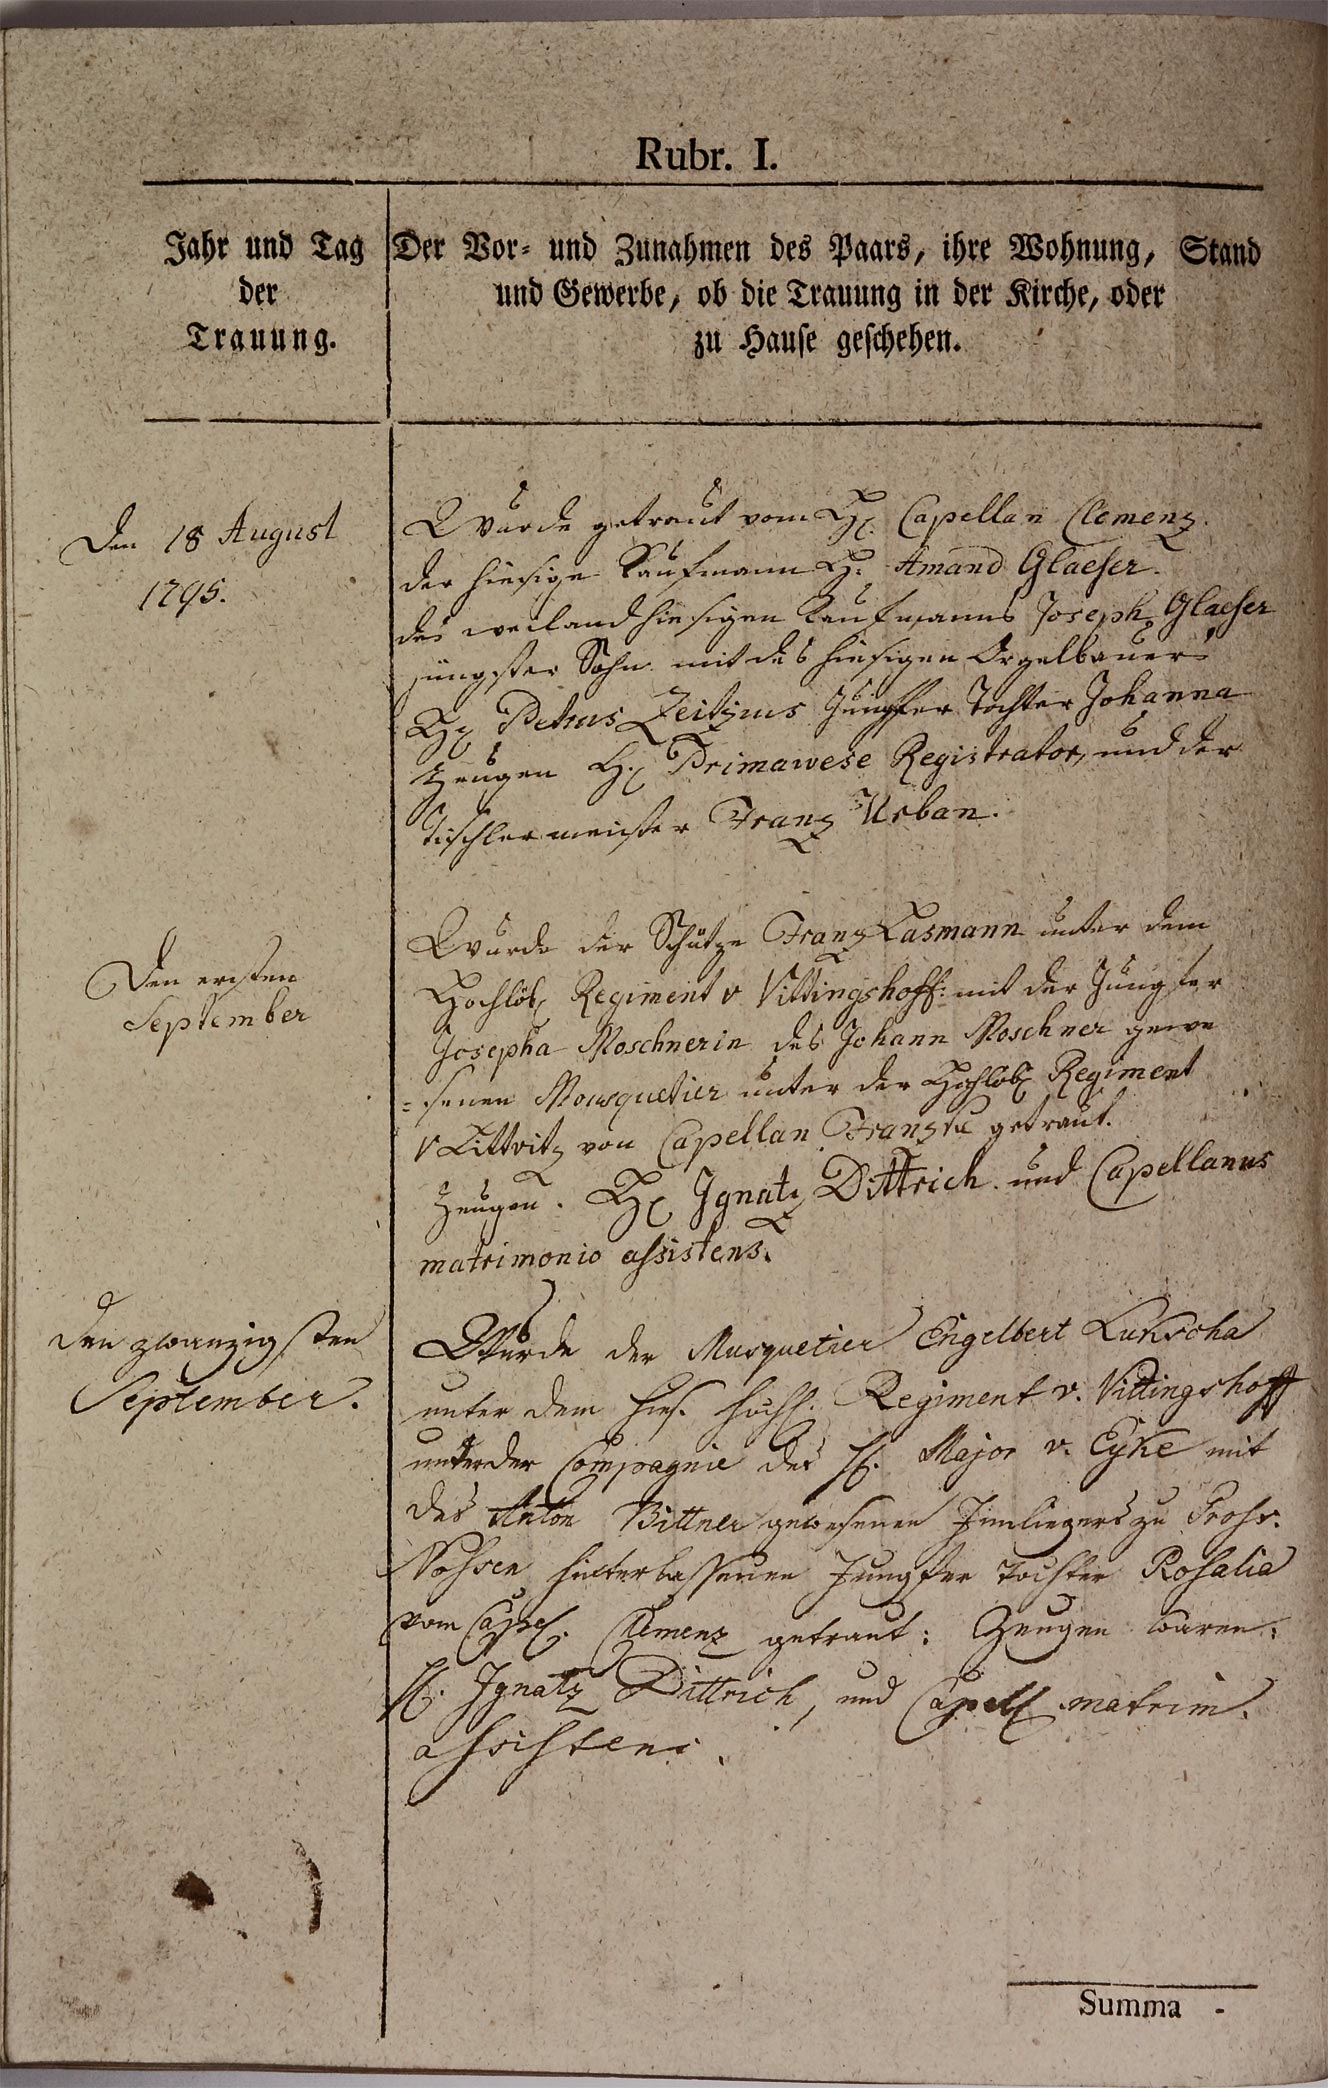 Rubr. I.
Jahr und Tag
der
Trauung.
Der Vor- und Zunahmen des Paars, ihre Wohnung, Stand
und Gewerbe, ob die Trauung in der Kirche, oder
zu Hause geschehen.
Den 18 August
1795.
Wurde getraut vom H. Capellan Clemenz.
der hiesige Kaufmann H. Amand Glaeser.
des weiland hiesigen Kaufmanns Joseph Glaeser
jüngster Sohn mit des hiesigen Orgelbauers
H. Petrus Zeitzius Jungfer Tochter Johanna
Zeugen H. Primawese Registrator, und der
Tischlermeister Franz Urban.
Den ersten
September
Wurde der Schütze Franz Kasmann unter dem
Hochlöb. Regiment v Vittingshoff: mit der Jungfer
Josepha Moschnerin des Johann Moschner gewe
=senen Mousquetier unter der Hochlöb. Regiment
v Zittvitz von Capellan getraut.
Zeugen. H. Ignatz Dittrich und Capellanus
matrimonio assistens.
Den zwanzigsten
September.
Wurde der Musquetier Engelbert Lukscha
unter dem hies. hochl. Regiment v. Vittingshoff
unter der Compagnie des H. Major v. Eyke mit
des Anton Bittner gewesenen Innliegers zu
Nossen hinterlassenen Jungfer Tochter Rosalia
vom Capel. Clemenz getraut: Zeugen waren:
H. Ignatz Dittrich, und Capell. matrim.
assistens.
Summa -